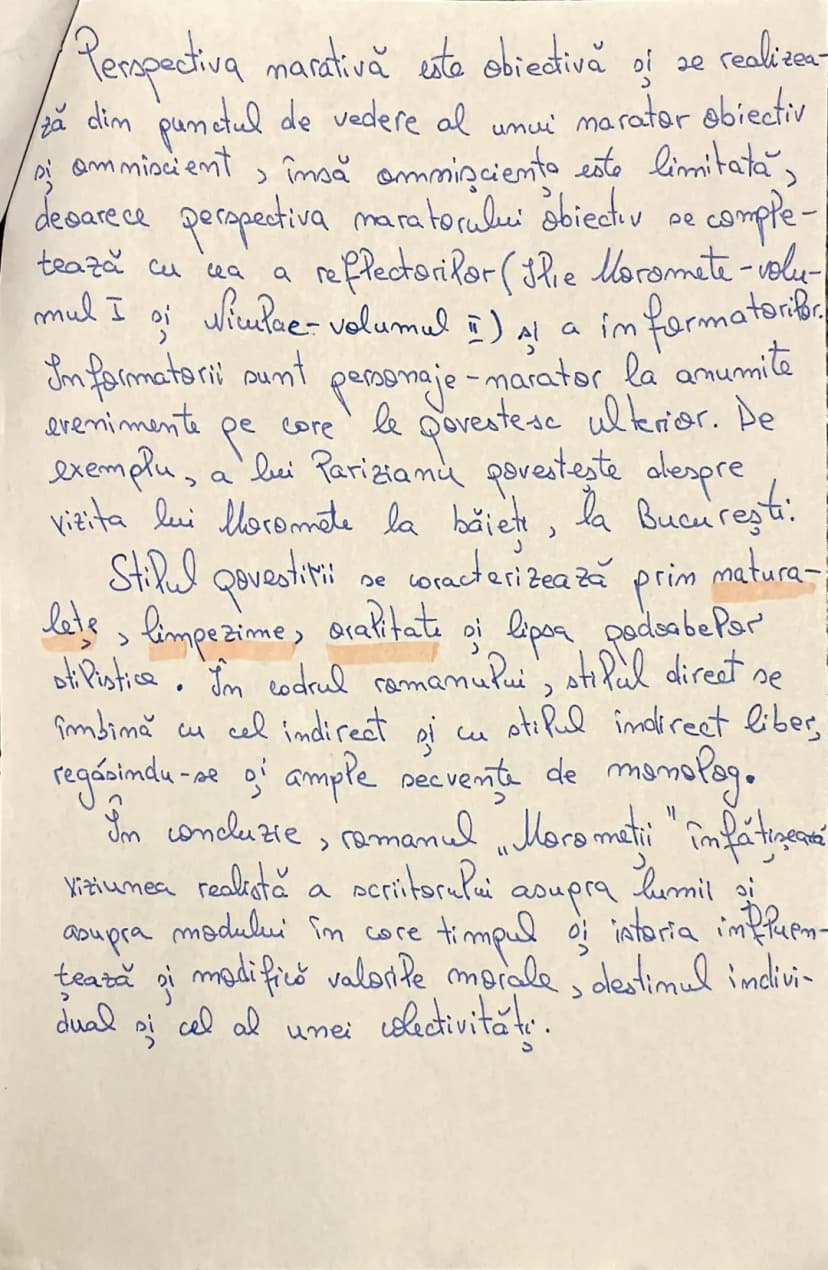 Perspectiva narativă este obiectivă și se realizea-
ză din punctul de vedere al unui narator obiectiv
și omniscient, însă omnisciența este limitată,
deoarece perspectiva naratorului obiectiv se comple-
tează cu cea a reflectorilor (Ilie Moromete - volu-
mul I și Niculae - volumul II) și a informatorilor.
Informatorii sunt personaje - narator la anumite
evenimente pe care le povestesc ulterior. De
exemplu, a lui Parizianu povestește despre
vizita lui Moromete la băieți, la București.
Stilul povestirii se caracterizează prin natura-
lețe, limpezime, oralitate și lipsa podoabelor
stilistice. În cadrul romanului, stilul direct se
îmbină cu cel indirect și cu stilul indirect liber,
regăsindu-se și ample secvențe de monolog.
În concluzie, romanul „Moromeții" înfățișează
viziunea realistă a scriitorului asupra lumii și
asupra modului în care timpul și istoria influen-
țează și modifică valorile morale, destinul indivi-
dual și cel al unei colectivități.